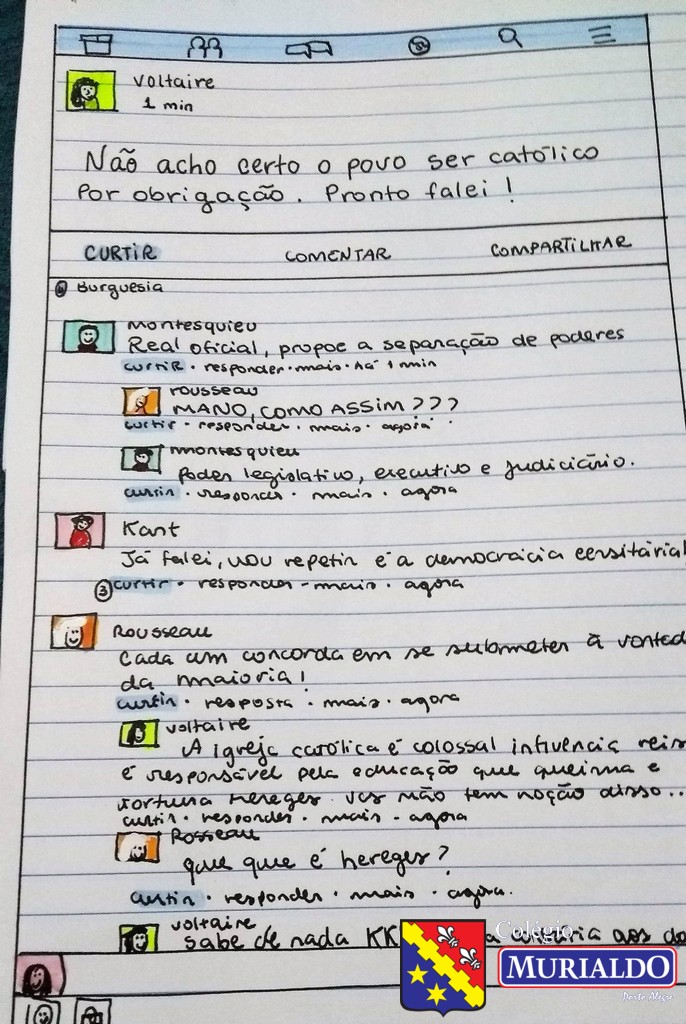 Voltaire
1 min
Não acho certo o povo ser católico
Por obrigação. Pronto falei!
CURTIR COMENTAR COMPARTILHAR
Burguesia
Montesquieu
Real oficial, propoe a separação de poderes
curtir · responder · mais · há 1 min
rousseau
MANO, COMO ASSIM???
curtir · responder · mais · agora
montesquieu
Poder legislativo, executivo e judiciário.
curtir · responder · mais · agora
Kant
Já falei, vou repetir é a democracia censitária!
3 curtir · responder - mais · agora
Rousseau
Cada um concorda em se submeter à vontad
da maioria!
curtir · resposta · mais · agora
voltaire
A igreja católica é colossal influencia reis
é responsável pela educação que queima e
tortura hereges. vcs não tem noção disso...
curtir · responder · mais - agora
Rosseau
que que é hereges?
curtir · responder · mais · agora.
voltaire
sabe de nada KK aos do
Colégio
MURIALDO
Porto Alegre